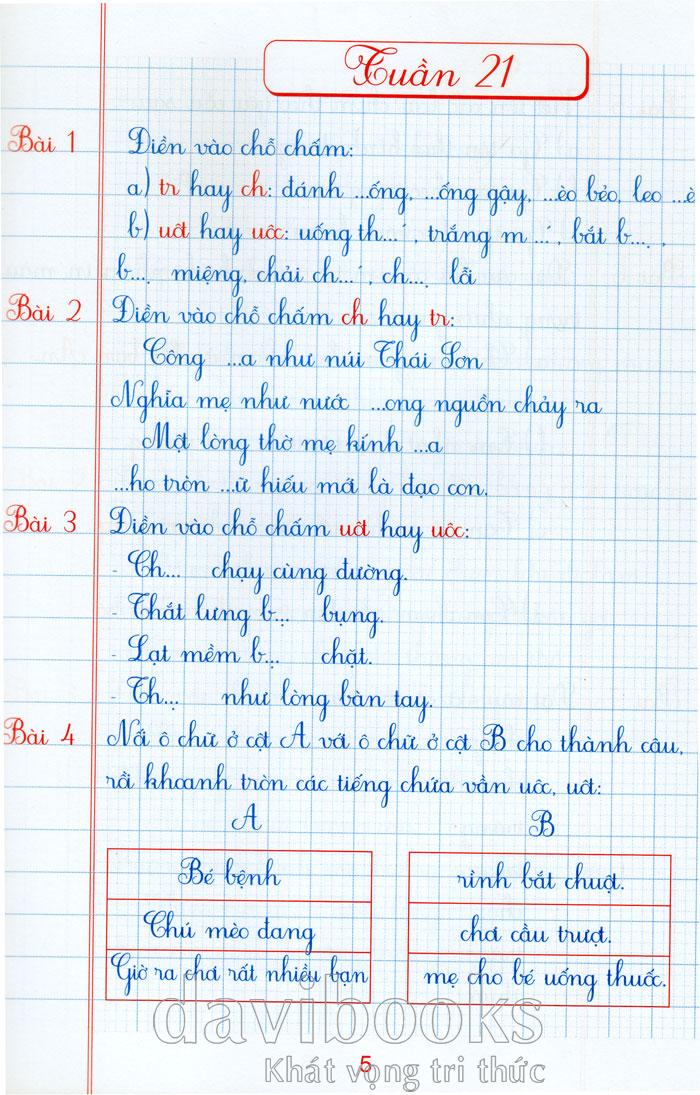 Tuần 21
Bài 1 Điền vào chỗ chấm:
a) tr hay ch: đánh ...ống, ...ống gậy, ...èo bẻo, leo ...è
b) uôt hay uôc: uống th...´, trắng m...´, bắt b....,
b.... miệng, chải ch...´, ch.... lỗi
Bài 2 Điền vào chỗ chấm ch hay tr:
Công ...a như núi Thái Sơn
Nghĩa mẹ như nước ...ong nguồn chảy ra
Một lòng thờ mẹ kính ...a
...ho tròn ...ữ hiếu mới là đạo con.
Bài 3 Điền vào chỗ chấm uôt hay uôc:
- Ch... chạy cùng đường.
- Thắt lưng b... bụng.
- Lạt mềm b... chặt.
- Th... như lòng bàn tay.
Bài 4 Nối ô chữ ở cột A với ô chữ ở cột B cho thành câu,
rồi khoanh tròn các tiếng chứa vần uôc, uôt:
A B
Bé bệnh rình bắt chuột.
Chú mèo đang chơi cầu trượt.
Giờ ra chơi rất nhiều bạn mẹ cho bé uống thuốc.
davibooks
5
Khát vọng tri thức